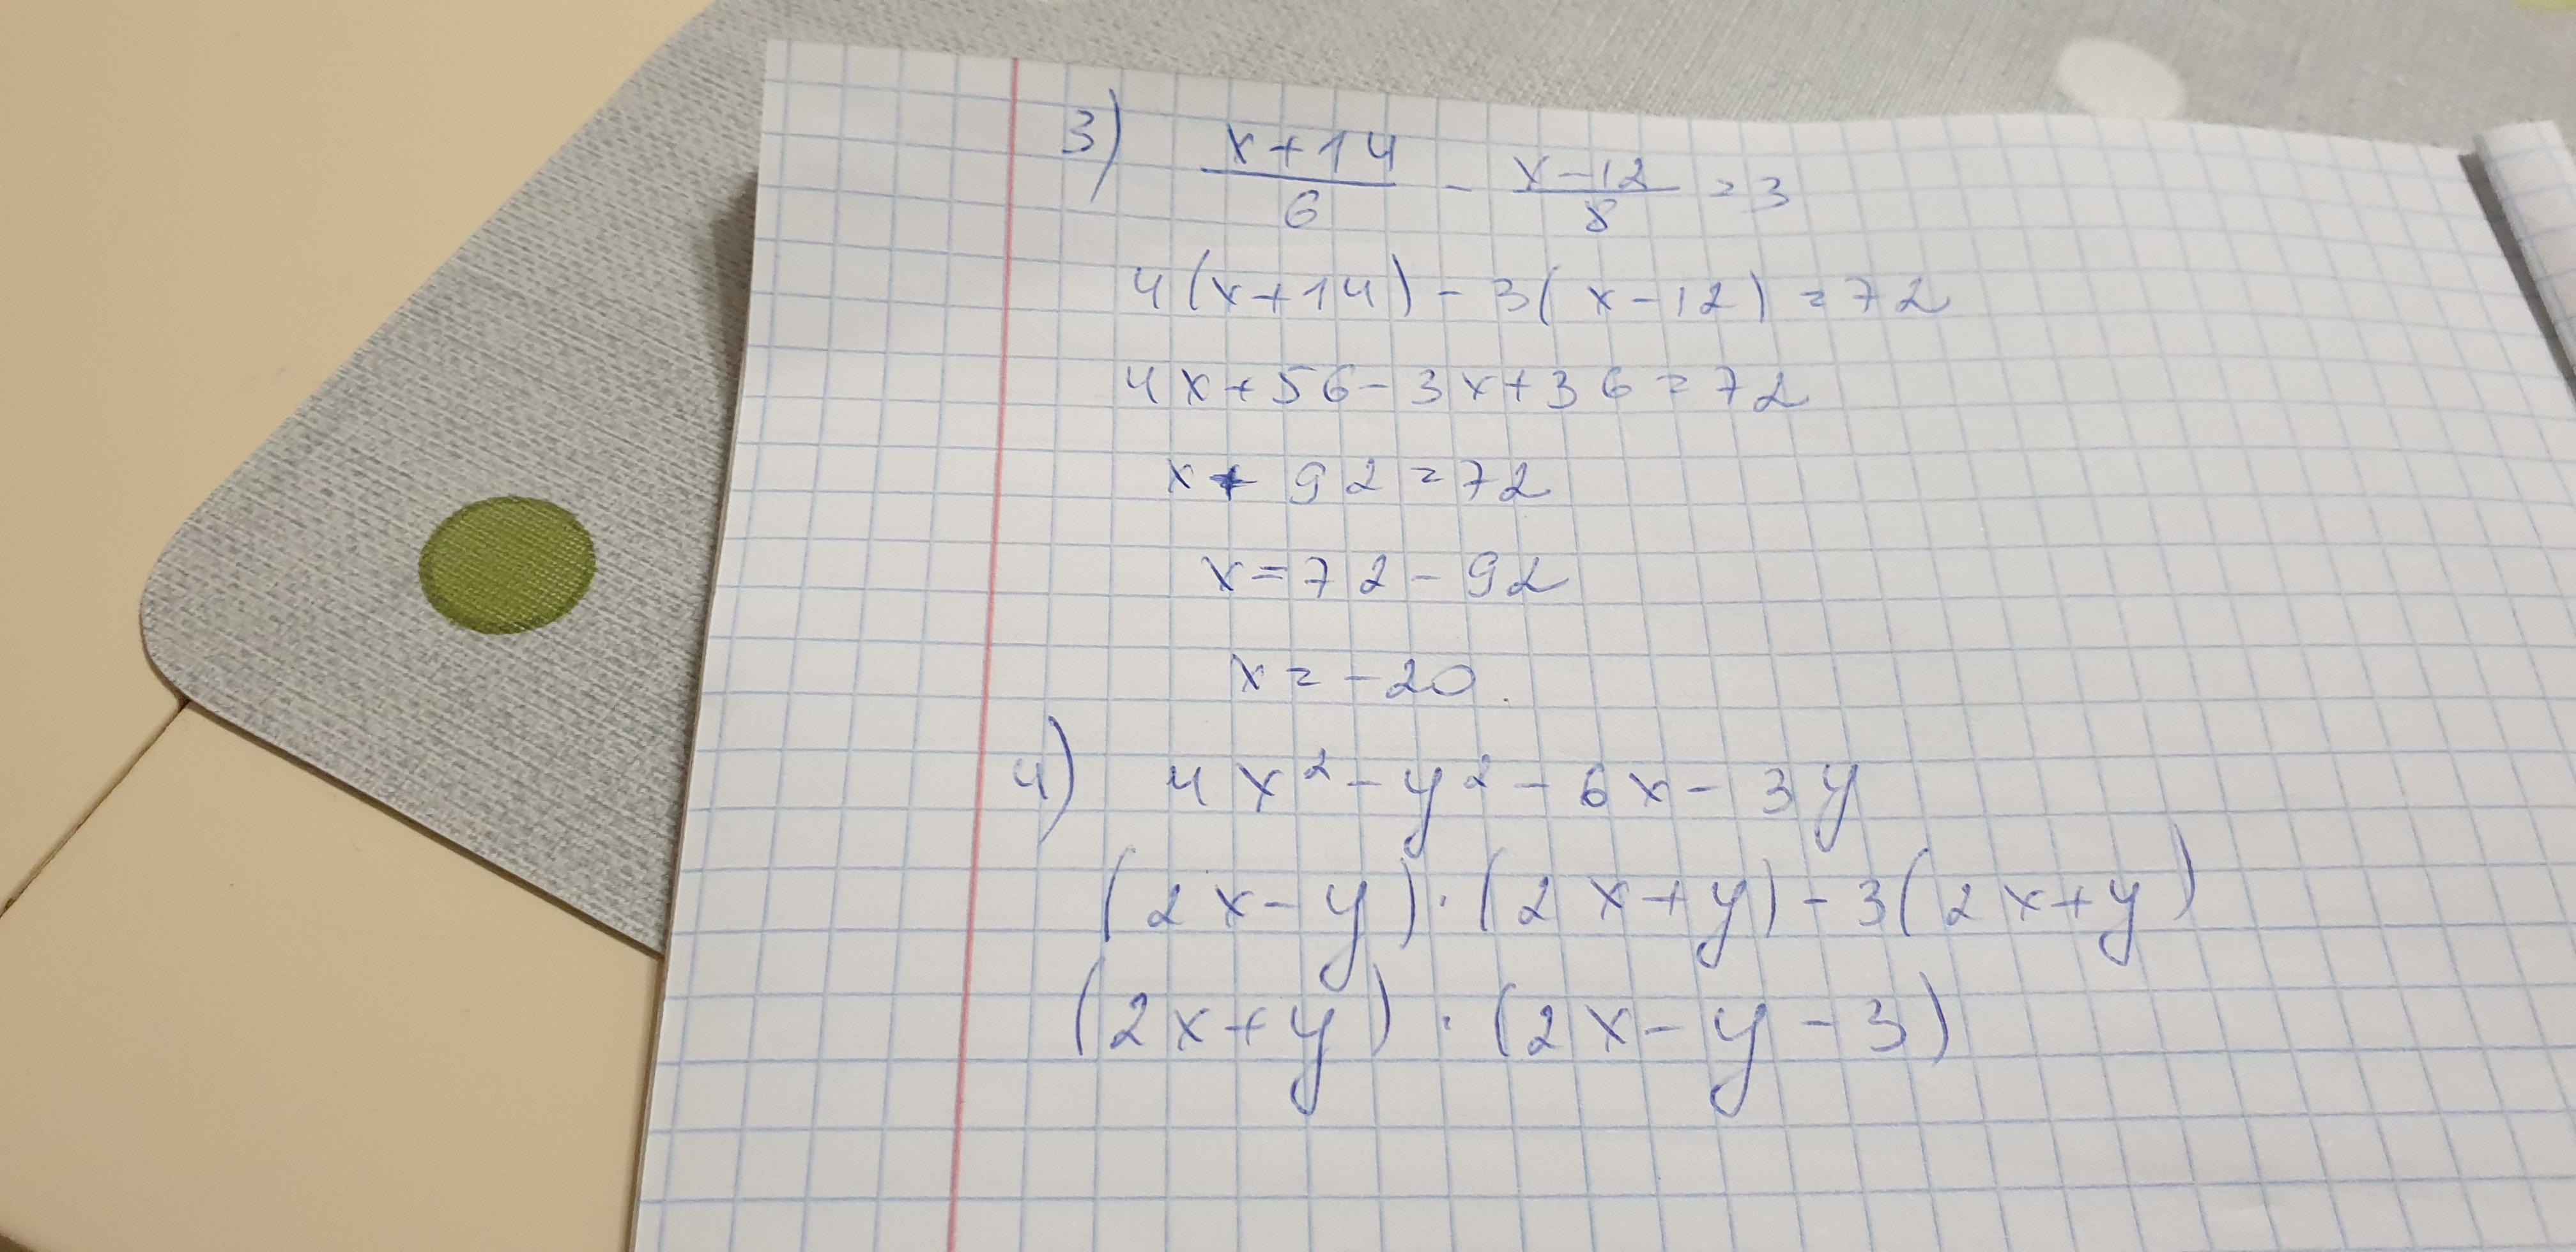 3) (x+14)/6 - (x-12)/8 = 3
4(x+14) - 3(x-12) = 72
4x+56-3x+36=72
x+92=72
x=72-92
x=-20.
4) 4x²-y²-6x-3y
(2x-y)·(2x+y)-3(2x+y)
(2x+y)·(2x-y-3)